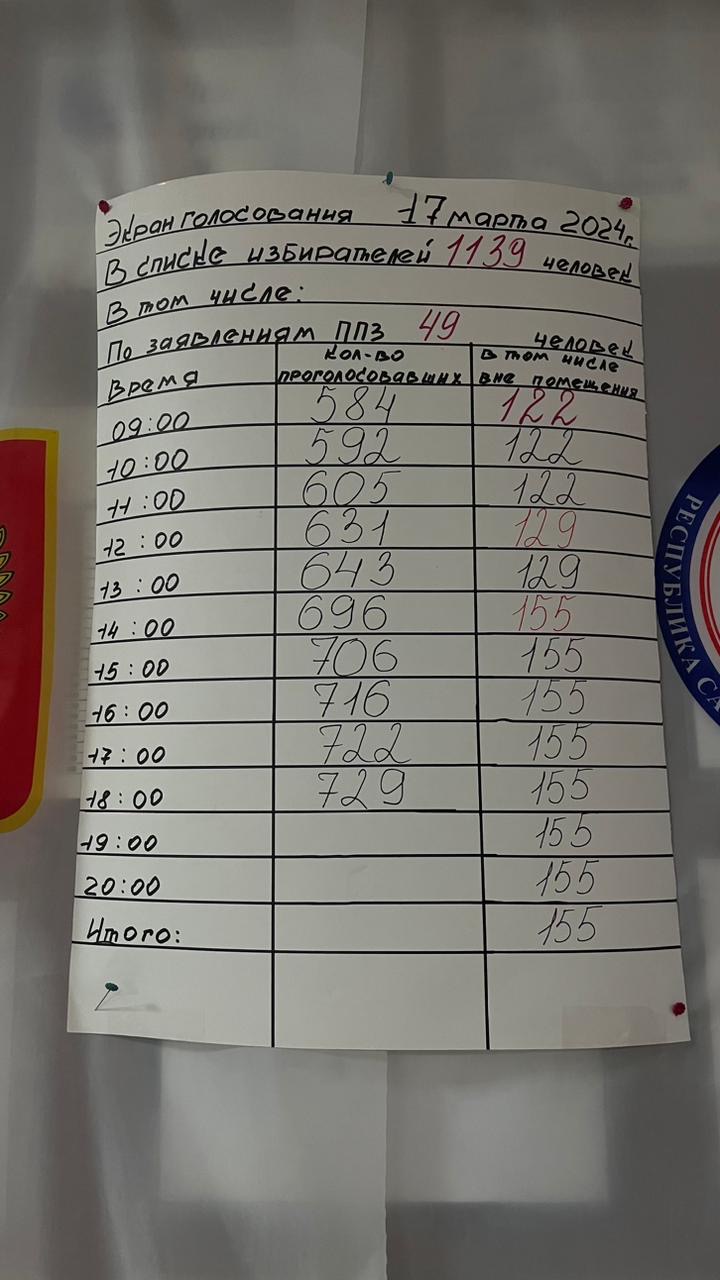 Экран голосования 17 марта 2024г.
В списке избирателей 1139 человек
В том числе:
По заявлениям ППЗ 49 человек
Время кол-во проголосовавших в том числе вне помещения
09:00 584 122
10:00 592 122
11:00 605 122
12:00 631 129
13:00 643 129
14:00 696 155
15:00 706 155
16:00 716 155
17:00 722 155
18:00 729 155
19:00 155
20:00 155
Итого: 155
РЕСПУБЛИКА СА